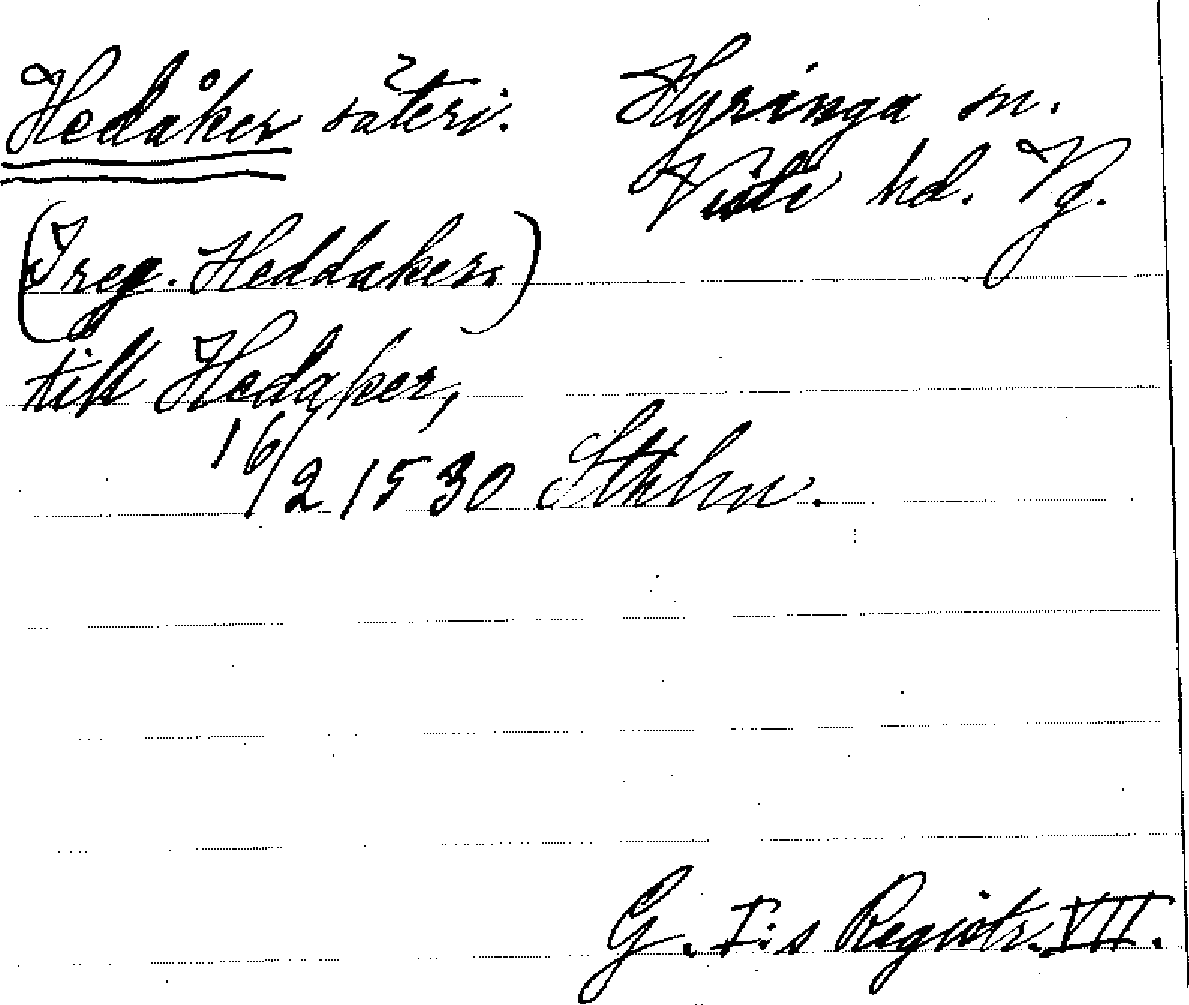 Hedåker säteri. Hyringa sn.
Viste hd. Vg.
(I reg. Heddaker.)
till Hedaker,
16/2 1530 Sthlm.
G. I:s Registr. VII.